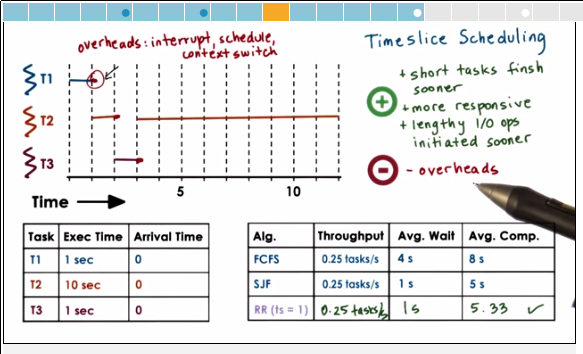 overheads: interrupt, schedule,
context switch
Timeslice Scheduling
T1
T2
T3
5
10
Time
+ short tasks finsh
sooner
+ more responsive
+ lengthy I/O ops
initiated sooner
- overheads
Task Exec Time Arrival Time
T1 1 sec 0
T2 10 sec 0
T3 1 sec 0
Alg. Throughput Avg. Wait Avg. Comp.
FCFS 0.25 tasks/s 4 s 8 s
SJF 0.25 tasks/s 1 s 5 s
RR (ts = 1) 0.25 tasks/s 1s 5.33 ✓